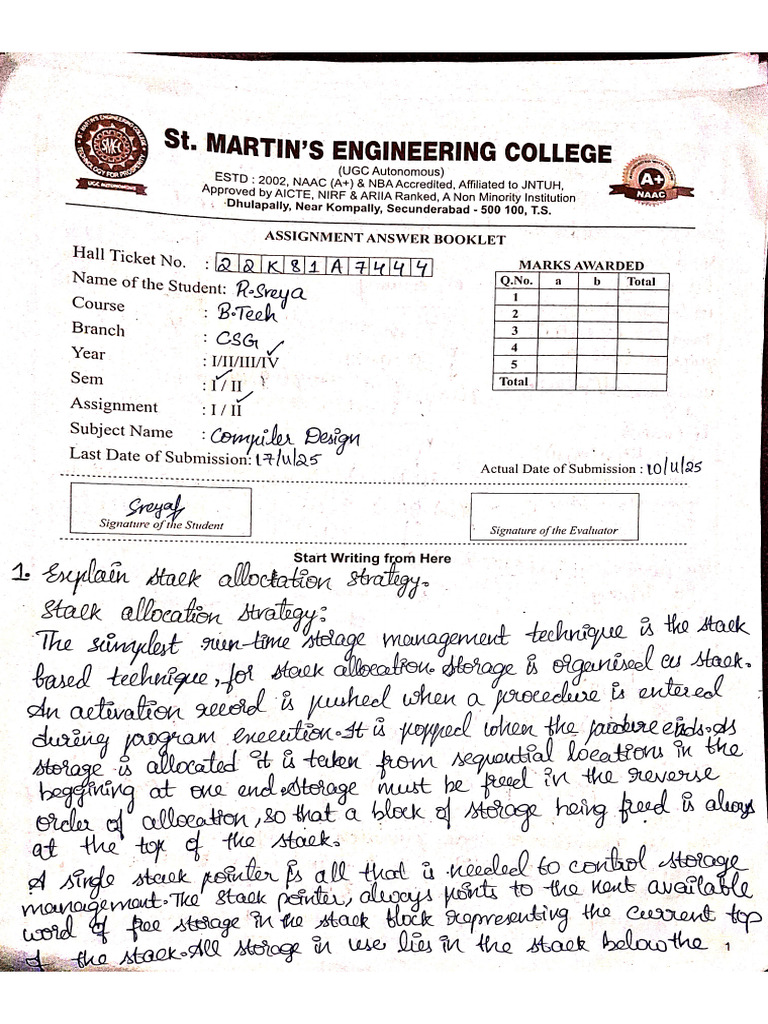 St. MARTIN'S ENGINEERING COLLEGE
(UGC Autonomous)
ESTD : 2002, NAAC (A+) & NBA Accredited, Affiliated to JNTUH,
Approved by AICTE, NIRF & ARIIA Ranked, A Non Minority Institution
Dhulapally, Near Kompally, Secunderabad - 500 100, T.S.
ST. MARTIN'S ENGINEERING COLLEGE
SMEC
TECHNOLOGY FOR PROSPERITY
UGC AUTONOMOUS
A+
NAAC
ASSIGNMENT ANSWER BOOKLET
Hall Ticket No. : 22K81A7444
Name of the Student: R.Sreya
Course : B.Tech
Branch : CSG
Year : I/II/III/IV
Sem : I / II
Assignment : I / II
Subject Name : Compiler Design
Last Date of Submission: 17/11/25
MARKS AWARDED
Q.No. a b Total
1
2
3
4
5
Total
Actual Date of Submission : 10/11/25
Sreya
Signature of the Student
Signature of the Evaluator
Start Writing from Here
1. Explain stack alloctation strategy.
Stack allocation strategy:
The simplest run-time storage management technique is the stack
based technique, for stack allocation. Storage is organised as stack.
An activation record is pushed when a procedure is entered
during program execution. It is popped when the ends. As
storage is allocated it is taken from sequential locations in the
beggining at one end. Storage must be freed in the reverse
order of allocation, so that a block of storage being freed is always
at the top of the stack.
A single stack pointer is all that is needed to control storage
management. The stack pointer, always points to the next available
word of free storage in the stack block representing the current top
of the stack. All storage in use lies in the stack below the 1